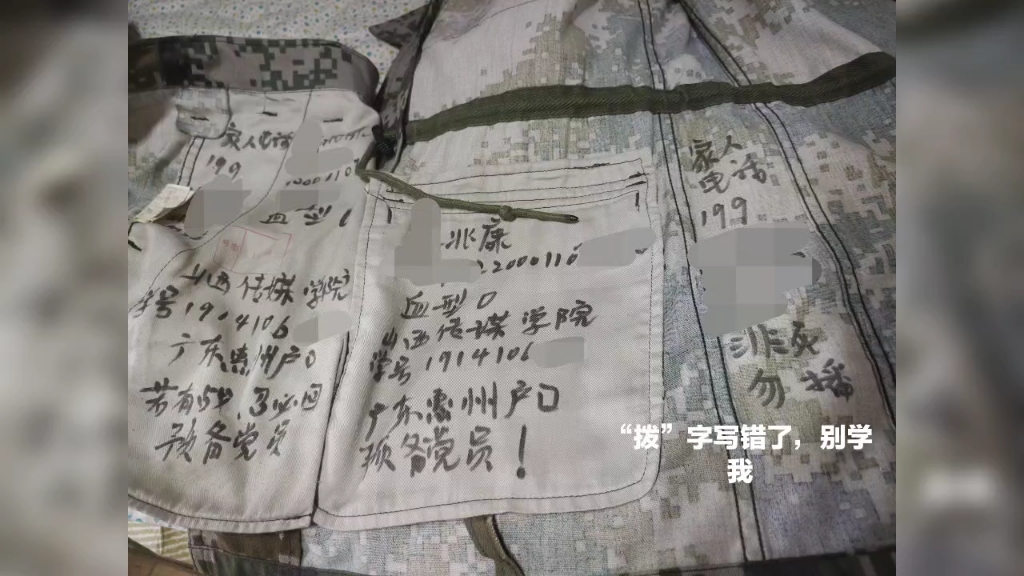 家人电话
199
血型
山西传媒学院
学号1904106
广东惠州户口
若有战,召必回
预备党员
兆康
22000110
血型O
山西传媒学院
学号1914106
广东惠州户口
预备党员!
家人
电话
199
非死
勿播
“拨”字写错了,别学
我